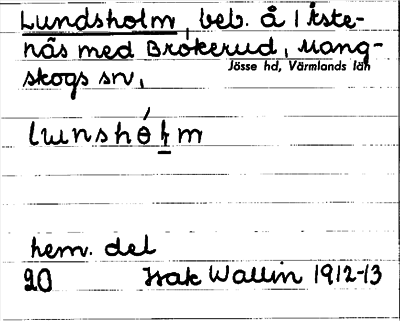 Lundsholm, beb. å 1 Åste-
näs med Brokerud, Mang-
Jösse hd, Värmlands län
skogs sn,
hem. del
20 Isak Wallin 1912-13